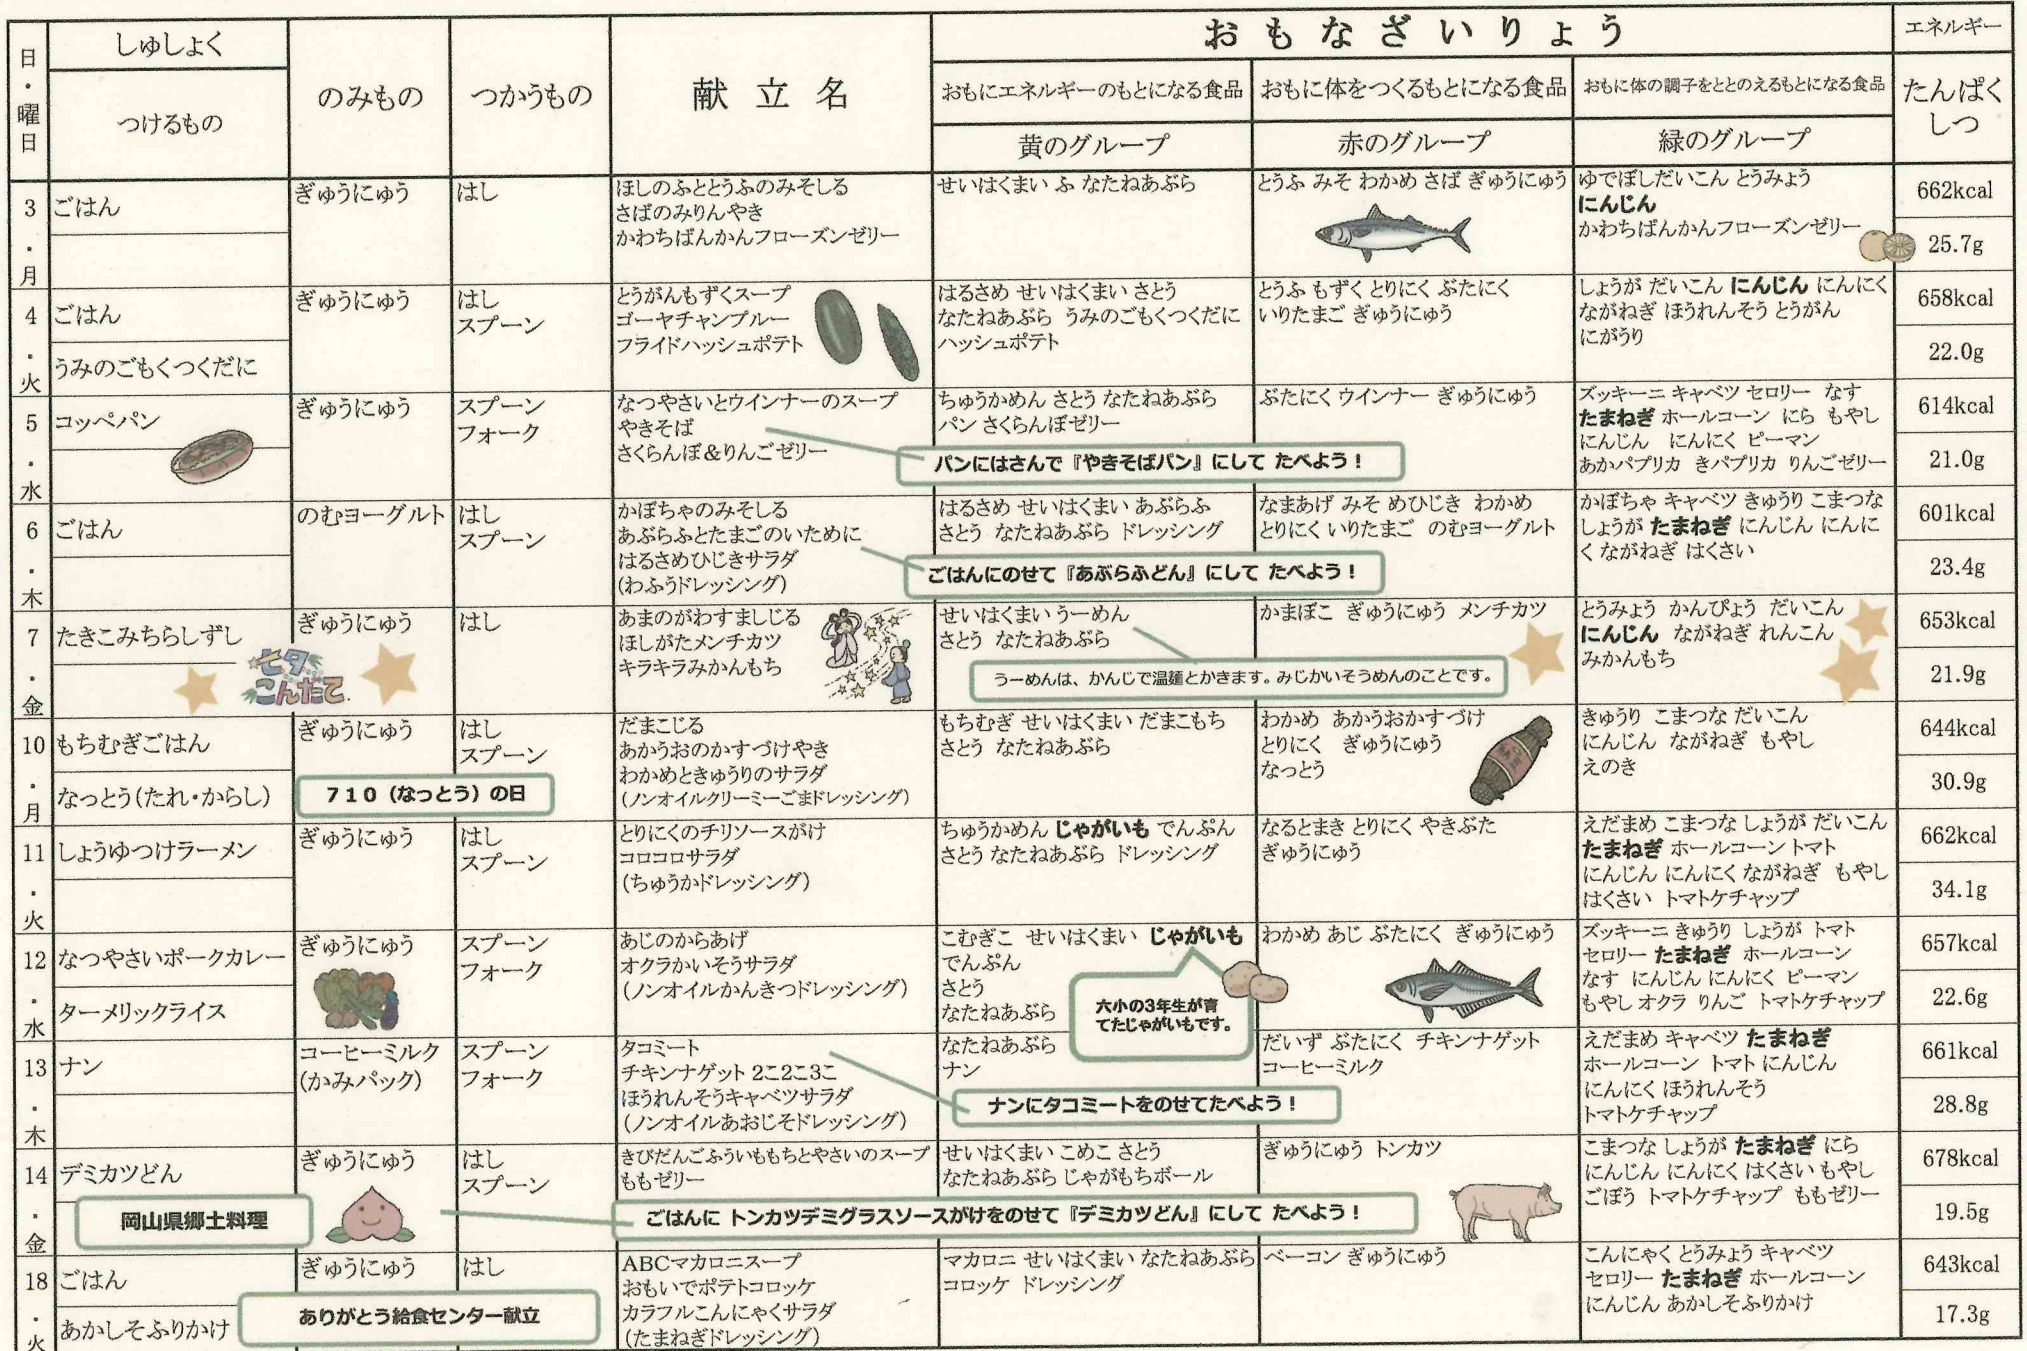 日・曜日
しゅしょく
つけるもの
のみもの
つかうもの
献立名
おもなざいりょう
おもにエネルギーのもとになる食品
黄のグループ
おもに体をつくるもとになる食品
赤のグループ
おもに体の調子をととのえるもとになる食品
緑のグループ
エネルギー
たんぱく
しつ
3・月
ごはん
ぎゅうにゅう
はし
ほしのふととうふのみそしる
さばのみりんやき
かわちばんかんフローズンゼリー
せいはくまい ふ なたねあぶら
とうふ みそ わかめ さば ぎゅうにゅう
ゆでぼしだいこん とうみょう
にんじん
かわちばんかんフローズンゼリー
662kcal
25.7g
4・火
ごはん
うみのごもくつくだに
ぎゅうにゅう
はし
スプーン
とうがんもずくスープ
ゴーヤチャンプルー
フライドハッシュポテト
はるさめ せいはくまい さとう
なたねあぶら うみのごもくつくだに
ハッシュポテト
とうふ もずく とりにく ぶたにく
いりたまご ぎゅうにゅう
しょうが だいこん にんじん にんにく
ながねぎ ほうれんそう とうがん
にがうり
658kcal
22.0g
5・水
コッペパン
ぎゅうにゅう
スプーン
フォーク
なつやさいとウインナーのスープ
やきそば
さくらんぼ&りんごゼリー
パンにはさんで『やきそばパン』にして たべよう！
ちゅうかめん さとう なたねあぶら
パン さくらんぼゼリー
ぶたにく ウインナー ぎゅうにゅう
ズッキーニ キャベツ セロリー なす
たまねぎ ホールコーン にら もやし
にんじん にんにく ピーマン
あかパプリカ きパプリカ りんごゼリー
614kcal
21.0g
6・木
ごはん
のむヨーグルト
はし
スプーン
かぼちゃのみそしる
あぶらふとたまごのいために
はるさめひじきサラダ
(わふうドレッシング)
ごはんにのせて『あぶらふどん』にして たべよう！
はるさめ せいはくまい あぶらふ
さとう なたねあぶら ドレッシング
なまあげ みそ めひじき わかめ
とりにく いりたまご のむヨーグルト
かぼちゃ キャベツ きゅうり こまつな
しょうが たまねぎ にんじん にんに
く ながねぎ はくさい
601kcal
23.4g
7・金
たきこみちらしずし
七夕
こんだて
ぎゅうにゅう
はし
あまのがわすましじる
ほしがたメンチカツ
キラキラみかんもち
せいはくまい うーめん
さとう なたねあぶら
うーめんは、かんじで温麺とかきます。みじかいそうめんのことです。
かまぼこ ぎゅうにゅう メンチカツ
とうみょう かんぴょう だいこん
にんじん ながねぎ れんこん
みかんもち
653kcal
21.9g
10・月
もちむぎごはん
なっとう(たれ・からし)
ぎゅうにゅう
７１０（なっとう）の日
はし
スプーン
だまこじる
あかうおのかすづけやき
わかめときゅうりのサラダ
(ノンオイルクリーミーごまドレッシング)
もちむぎ せいはくまい だまこもち
さとう なたねあぶら
わかめ あかうおかすづけ
とりにく ぎゅうにゅう
なっとう
きゅうり こまつな だいこん
にんじん ながねぎ もやし
えのき
644kcal
30.9g
11・火
しょうゆつけラーメン
ぎゅうにゅう
はし
スプーン
とりにくのチリソースがけ
コロコロサラダ
(ちゅうかドレッシング)
ちゅうかめん じゃがいも でんぷん
さとう なたねあぶら ドレッシング
なるとまき とりにく やきぶた
ぎゅうにゅう
えだまめ こまつな しょうが だいこん
たまねぎ ホールコーン トマト
にんじん にんにく ながねぎ もやし
はくさい トマトケチャップ
662kcal
34.1g
12・水
なつやさいポークカレー
ターメリックライス
ぎゅうにゅう
スプーン
フォーク
あじのからあげ
オクラかいそうサラダ
(ノンオイルかんきつドレッシング)
こむぎこ せいはくまい じゃがいも
でんぷん
さとう
なたねあぶら
六小の3年生が育
てたじゃがいもです。
わかめ あじ ぶたにく ぎゅうにゅう
ズッキーニ きゅうり しょうが トマト
セロリー たまねぎ ホールコーン
なす にんじん にんにく ピーマン
もやし オクラ りんご トマトケチャップ
657kcal
22.6g
13・木
ナン
コーヒーミルク
(かみパック)
スプーン
フォーク
タコミート
チキンナゲット 2こ2こ3こ
ほうれんそうキャベツサラダ
(ノンオイルあおじそドレッシング)
ナンにタコミートをのせてたべよう！
なたねあぶら
ナン
だいず ぶたにく チキンナゲット
コーヒーミルク
えだまめ キャベツ たまねぎ
ホールコーン トマト にんじん
にんにく ほうれんそう
トマトケチャップ
661kcal
28.8g
14・金
デミカツどん
岡山県郷土料理
ぎゅうにゅう
はし
スプーン
きびだんごふういももちとやさいのスープ
ももゼリー
ごはんに トンカツデミグラスソースがけをのせて『デミカツどん』にして たべよう！
せいはくまい こめこ さとう
なたねあぶら じゃがもちボール
ぎゅうにゅう トンカツ
こまつな しょうが たまねぎ にら
にんじん にんにく はくさい もやし
ごぼう トマトケチャップ ももゼリー
678kcal
19.5g
18・火
ごはん
あかしそふりかけ
ぎゅうにゅう
ありがとう給食センター献立
はし
ABCマカロニスープ
おもいでポテトコロッケ
カラフルこんにゃくサラダ
(たまねぎドレッシング)
マカロニ せいはくまい なたねあぶら
コロッケ ドレッシング
ベーコン ぎゅうにゅう
こんにゃく とうみょう キャベツ
セロリー たまねぎ ホールコーン
にんじん あかしそふりかけ
643kcal
17.3g